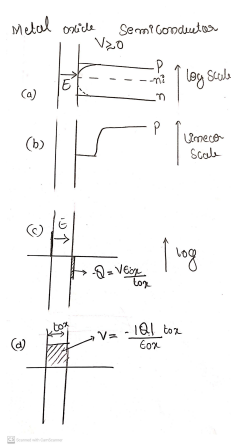 Metal oxide Semiconductor
V≥0
P
ni
n
E
log Scale
(a)
(b)
P
Linear
Scale
(c)
E
-Q = VEox/tox
log
tox
(d)
V = -|Q| tox/Eox
Scanned with CamScanner